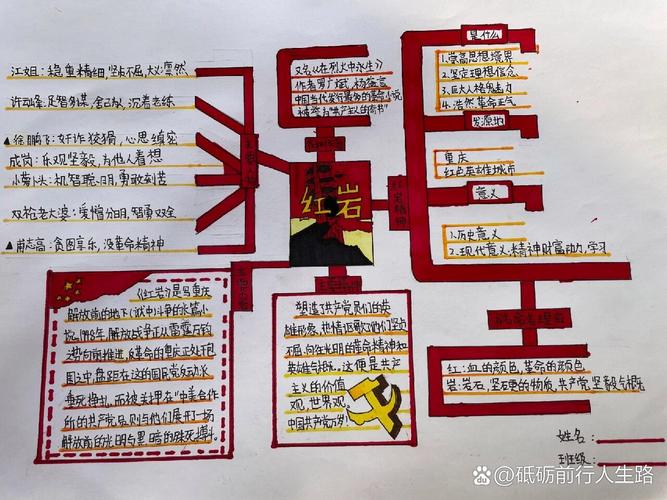 江姐：稳重精细，坚贞不屈，大义凛然
许云峰：足智多谋，舍己救人，沉着老练
▲徐鹏飞：奸诈狡猾，心思缜密
成岗：乐观坚毅，为他人着想
小萝卜头：机智聪明，勇敢刻苦
双枪老太婆：爱憎分明，智勇双全
▲甫志高：贪图享乐，没革命精神
又名《在烈火中永生》
作者罗广斌，杨益言
中国当代发行最多的革命小说
被誉为"共产主义的奇书"
红岩
是什么
1.崇高思想境界
2.坚定理想信念
3.巨大人格魅力
4.浩然革命正气
发源地
重庆
红色英雄城市
意义
1.历史意义
2.现代意义，精神财富，动力，学习
红：血的颜色，革命的颜色
岩：岩石，坚硬的物质，共产党坚毅气概
《红岩》是写重庆
解放前的地下（狱中）斗争的长篇小
说，1948年，解放战争正从雷霆万钧
之势向前推进，在革命的重庆正处于包
围之中，盘踞在这的国民党反动派
垂死挣扎，而被关押在"中美合作
所"的共产党员则与他们展开了一场
解放前的光明与黑暗的殊死搏斗。
塑造了共产党员们的英
雄形象，热情讴歌了他们坚贞
不屈，向往光明的革命精神和
英雄气概，这便是共产
主义的价值
观，世界观，
中国共产党万岁！
姓名：
班级：
砥砺前行人生路